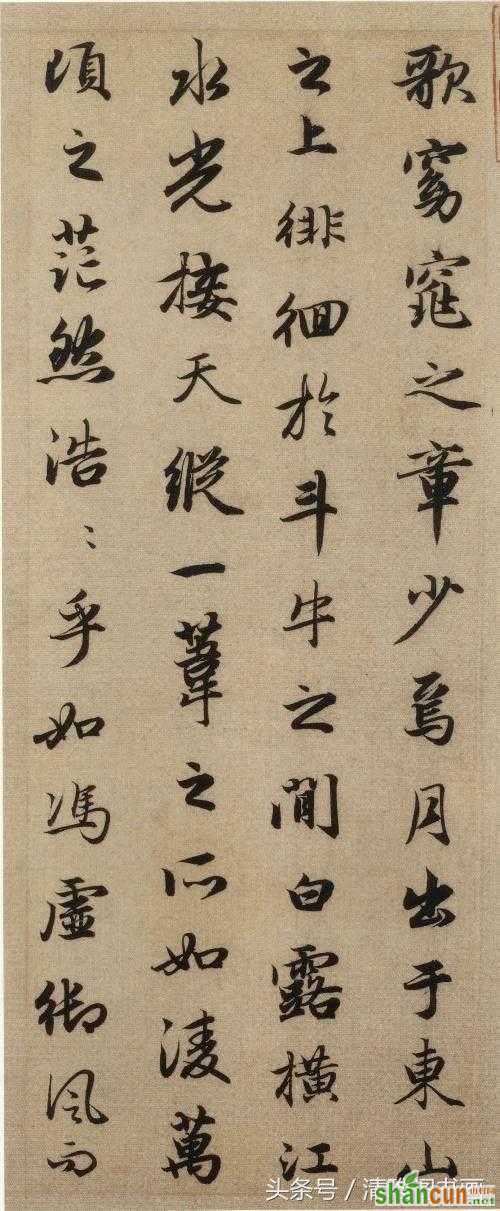 歌窈窕之章少焉月出于東山
之上徘徊於斗牛之間白露橫江
水光接天縱一葦之所如淩萬
頃之茫然浩〻乎如馮虛御風而
头条号／清
shancun